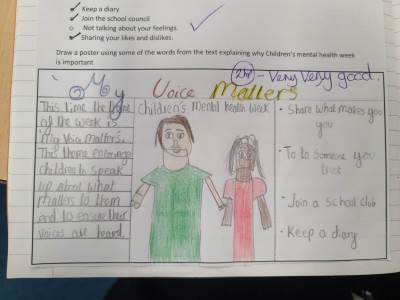 Keep a diary
Join the school council
Not talking about your feelings.
Sharing your likes and dislikes.
Draw a poster using some of the words from the text explaining why Children's mental health week
is important
2hp - Very very good.
My Voice Matters
This time the theme
of the week is
'My Voice Matters'.
This theme encourage
children to speak
up about what
matters to them
and to ensure their
voices are heard.
Children's mental health week
• Share what makes you
you
• To to someone you
trust
• Join a School club
• Keep a diary